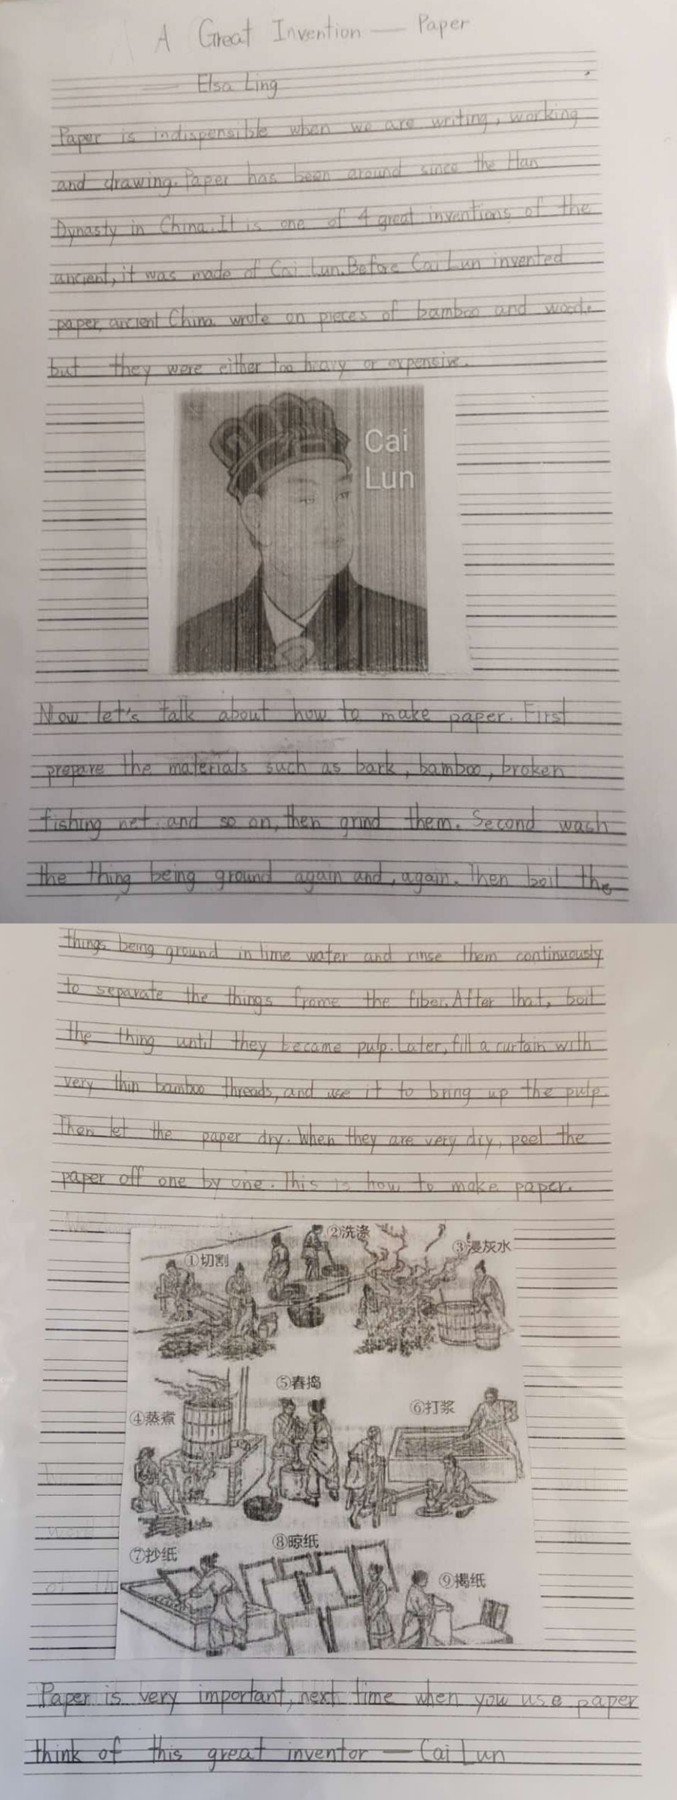 A Great Invention — Paper
— Elsa Ling
Paper is indispensible when we are writing, working
and drawing. Paper has been around since the Han
Dynasty in China. It is one of 4 great inventions of the
ancient, it was made of Cai Lun. Before Cai Lun invented
paper, ancient China wrote on pieces of bamboo and wood.
but they were either too heavy or expensive.
Cai
Lun
Now let's talk about how to make paper. First
prepare the materials such as bark, bamboo, broken
fishing net and so on, then grind them. Second wash
the thing being ground again and, again. Then boil the
things being ground in lime water and rinse them continuously
to separate the things frome the fiber. After that, boil
the thing until they became pulp. Later, fill a curtain with
very thin bamboo threads, and use it to bring up the pulp.
Then let the paper dry. When they are very dry, peel the
paper off one by one. This is how to make paper.
①切割
②洗涤
③浸灰水
④蒸煮
⑤舂捣
⑥打浆
⑦抄纸
⑧晾纸
⑨揭纸
Paper is very important, next time when you use paper
think of this great inventor — Cai Lun